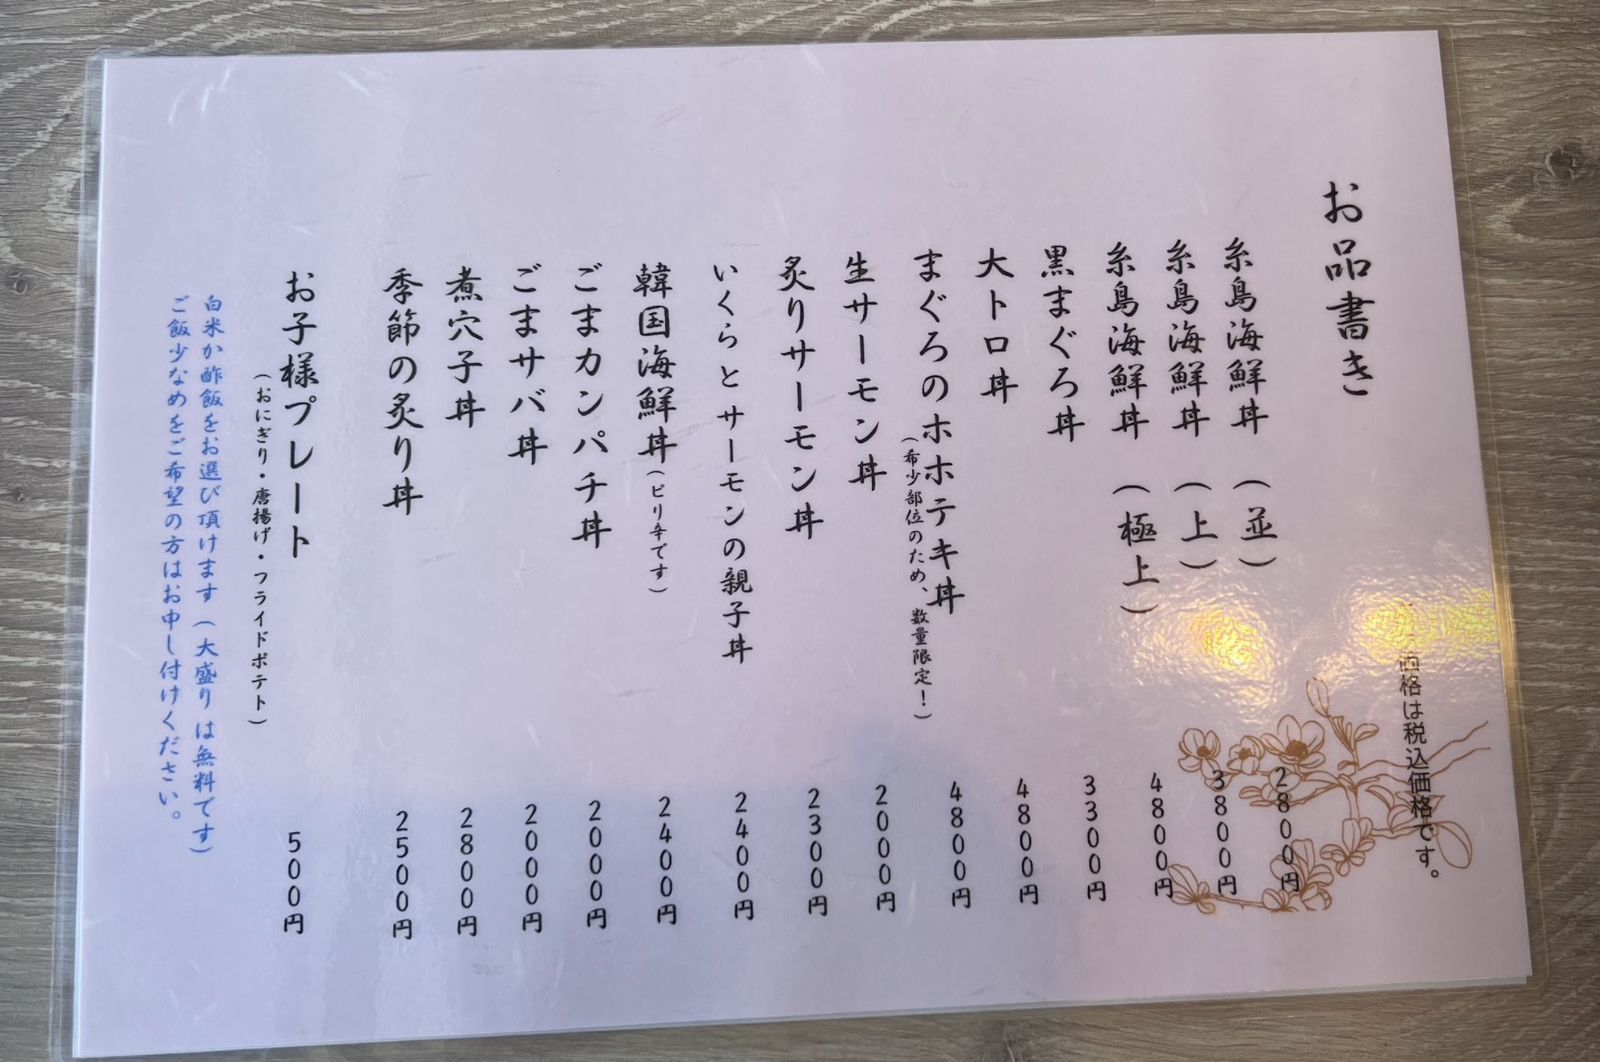 価格は税込価格です。
お品書き
糸島海鮮丼（並） 2800円
糸島海鮮丼（上） 3800円
糸島海鮮丼（極上） 4800円
黒まぐろ丼 3300円
大トロ丼 4800円
まぐろのホホテキ丼 4800円
（希少部位のため、数量限定！）
生サーモン丼 2000円
炙りサーモン丼 2300円
いくらとサーモンの親子丼 2400円
韓国海鮮丼（ピリ辛です） 2400円
ごまカンパチ丼 2000円
ごまサバ丼 2000円
煮穴子丼 2800円
季節の炙り丼 2500円
お子様プレート 500円
（おにぎり・唐揚げ・フライドポテト）
白米か酢飯をお選び頂けます（大盛りは無料です）
ご飯少なめをご希望の方はお申し付けください。